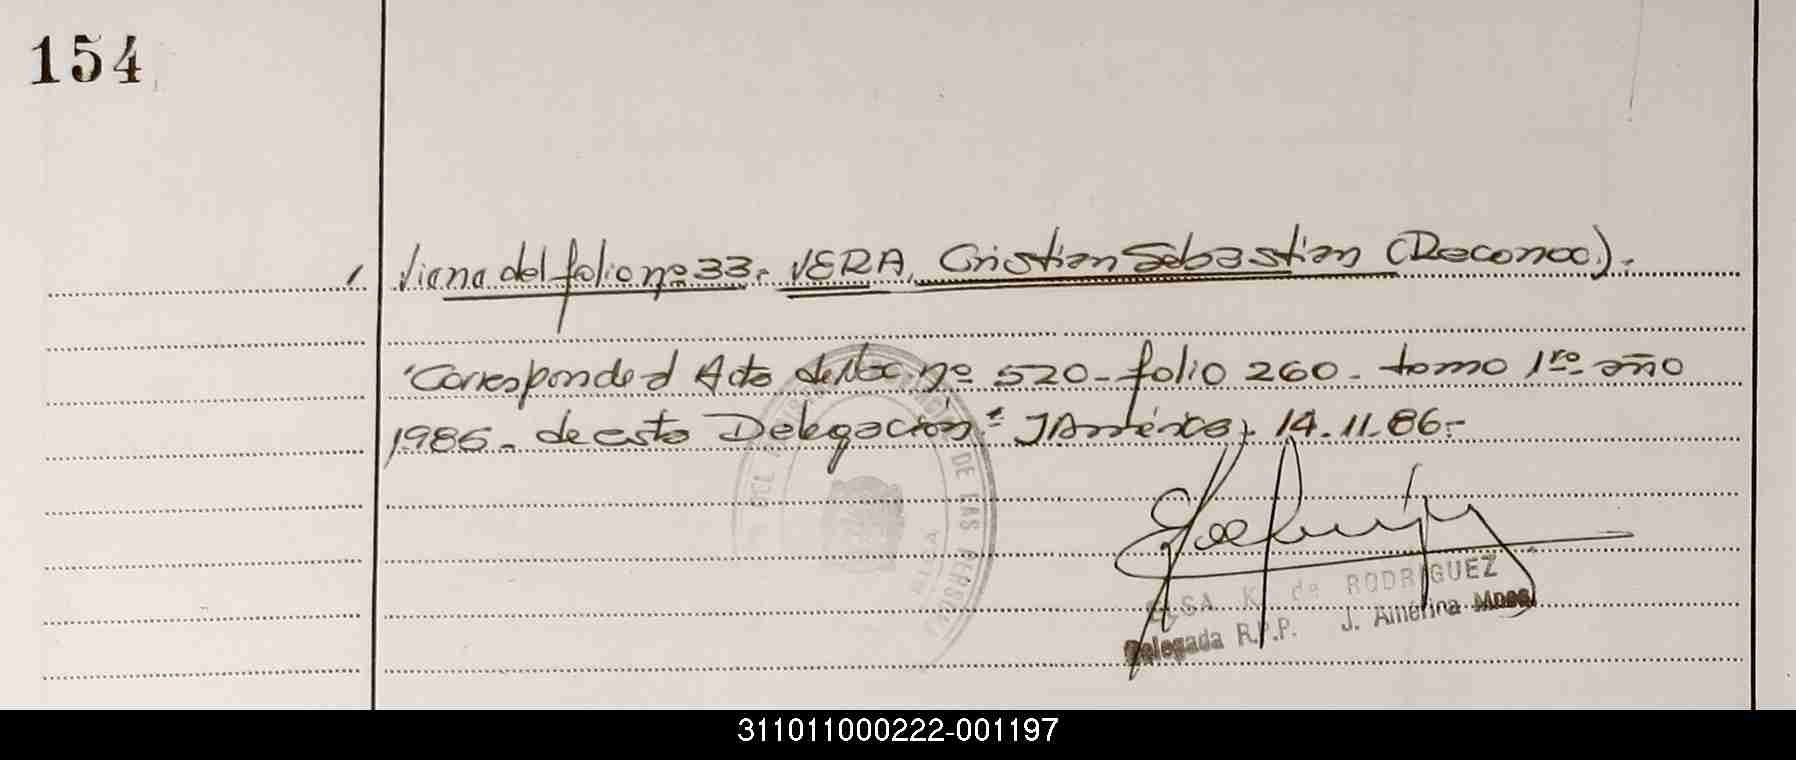 154
Viene del folio nº 33. VERA, Cristian Sebastian (Reconoc).
"Corresponde al Acta de Nac nº 520 - folio 260 - tomo 1ro. año
1986 - de esta Delegación" J América, 14.11.86.-
DE LAS PERSO
ELSA K. de RODRIGUEZ
Delegada R.P.P. J. América Mnes.
311011000222-001197